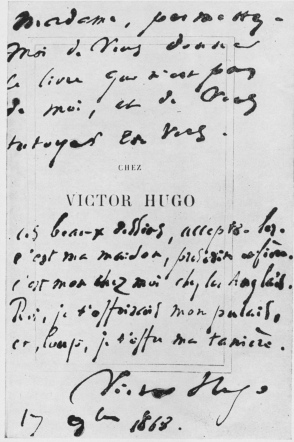 Madame, permettez-
moi de Vous donner
ce livre qui n'est pas
de moi, et de Vous
tutoyer en vers.
CHEZ
VICTOR HUGO
Ces beaux dessins, acceptez-les.
c'est ma maison, 
c'est mon chez moi chez les Anglais.
Roi, je t'offrirais mon palais,
et, loup, je t'offre ma tanière.
Victor Hugo
17 9bre 1868.